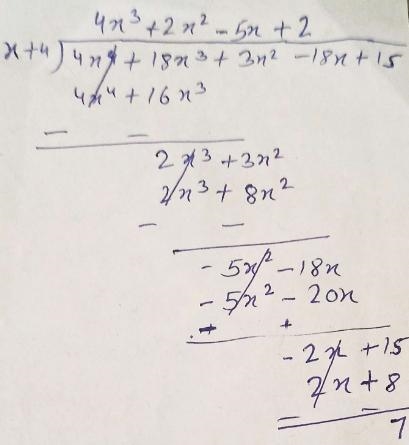 4x³ + 2x² - 5x + 2
x+4 ) 4x⁴ + 18x³ + 3x² - 18x + 15
4x⁴ + 16x³
- -
2x³ + 3x²
2x³ + 8x²
- -
- 5x² - 18x
- 5x² - 20x
+ +
- 2x + 15
2x + 8
-
7